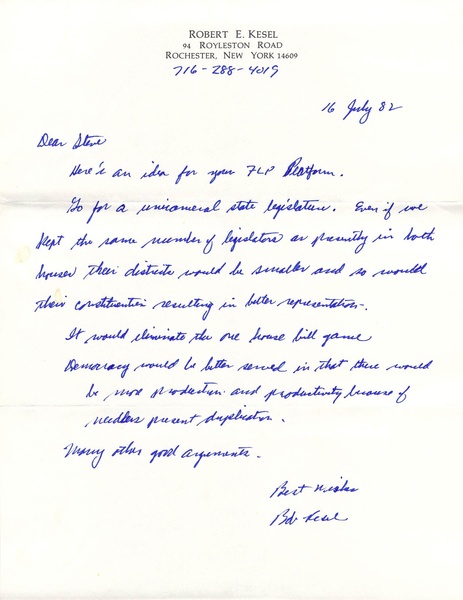 ROBERT E. KESEL
94 ROYLESTON ROAD
ROCHESTER, NEW YORK 14609
716-288-4019
16 July 82
Dear Steve
Here's an idea for your FLP Platform.
Go for a unicameral state legislature. Even if we
kept the same number of legislators as presently in both
houses their districts would be smaller and so would
their constituencies resulting in better representation.
It would eliminate the one house bill game
Democracy would be better served in that there would
be more production and productivity because of
needless present duplication.
Many other good arguments.
Best wishes
Bob Kesel